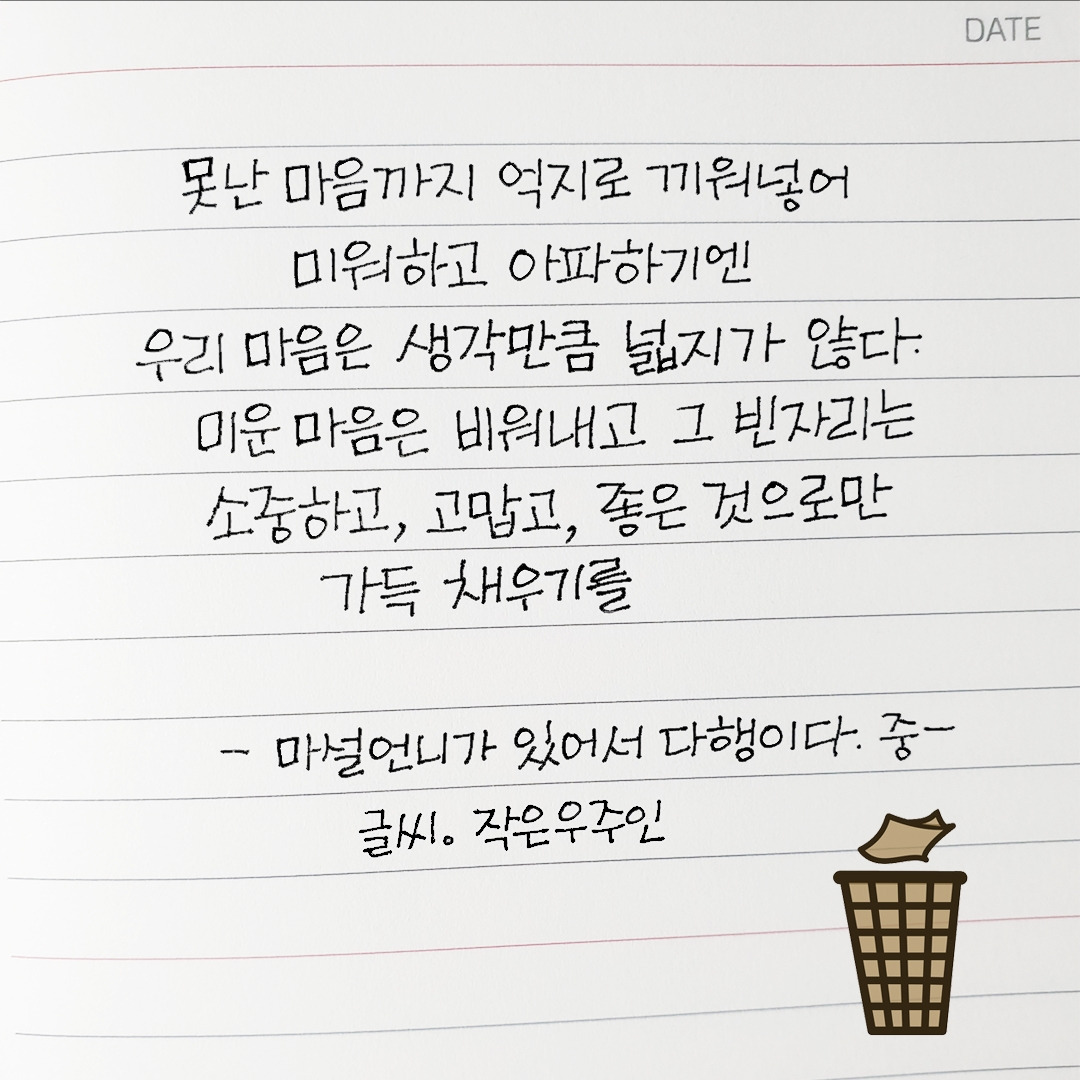 DATE
못난 마음까지 억지로 끼워넣어
미워하고 아파하기엔
우리 마음은 생각만큼 넓지가 않다.
미운 마음은 비워내고 그 빈자리는
소중하고, 고맙고, 좋은 것으로만
가득 채우기를
- 마설언니가 있어서 다행이다. 중-
글씨. 작은우주인